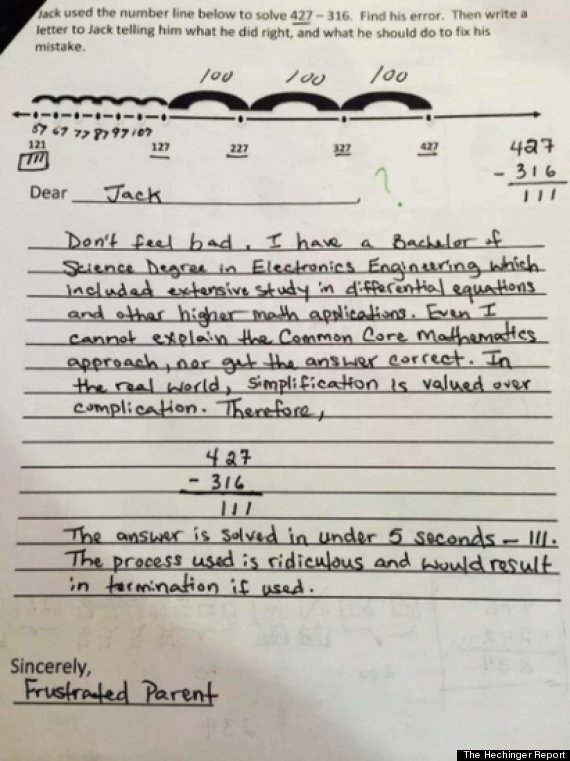 Jack used the number line below to solve 427 – 316. Find his error. Then write a
letter to Jack telling him what he did right, and what he should do to fix his
mistake.
100 100 100
57 67 77 87 97 107
121 127 227 327 427
111
427
- 316
111
?
Dear Jack,
Don't feel bad. I have a Bachelor of
Science Degree in Electronics Engineering which
included extensive study in differential equations
and other higher math applications. Even I
cannot explain the Common Core Mathematics
approach, nor get the answer correct. In
the real world, simplification is valued over
complication. Therefore,
427
- 316
111
The answer is solved in under 5 seconds — 111.
The process used is ridiculous and would result
in termination if used.
Sincerely,
Frustrated Parent
The Hechinger Report